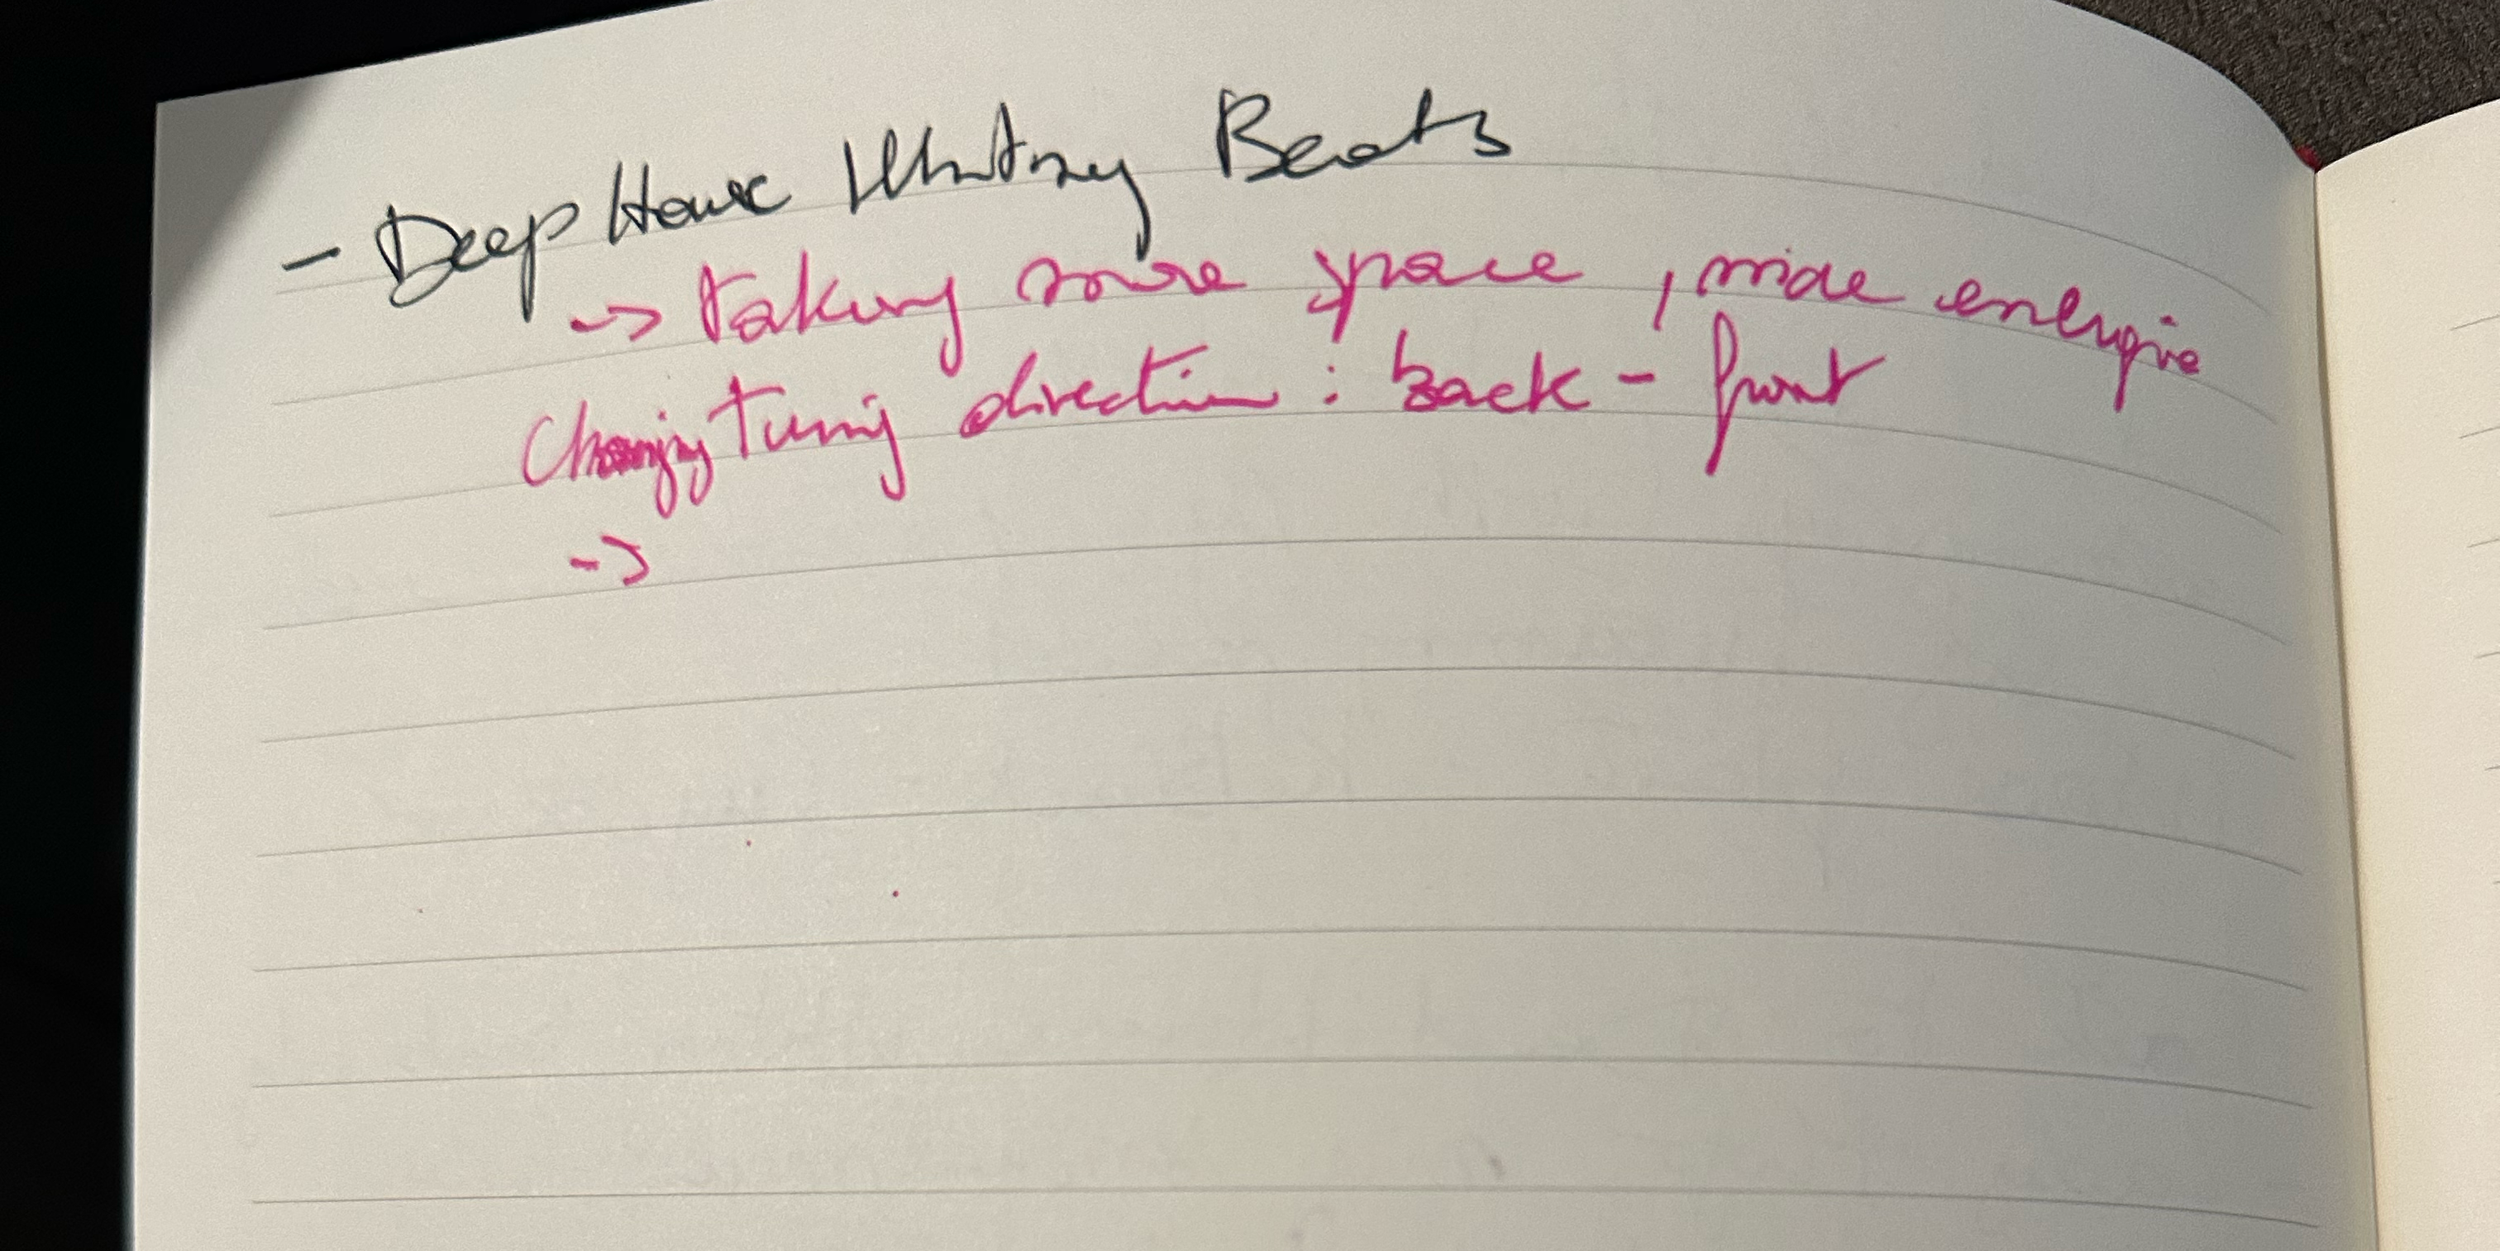 - Deep House Whitney Beats
-> taking more space, wide energie
Changing turning direction : back - front
->